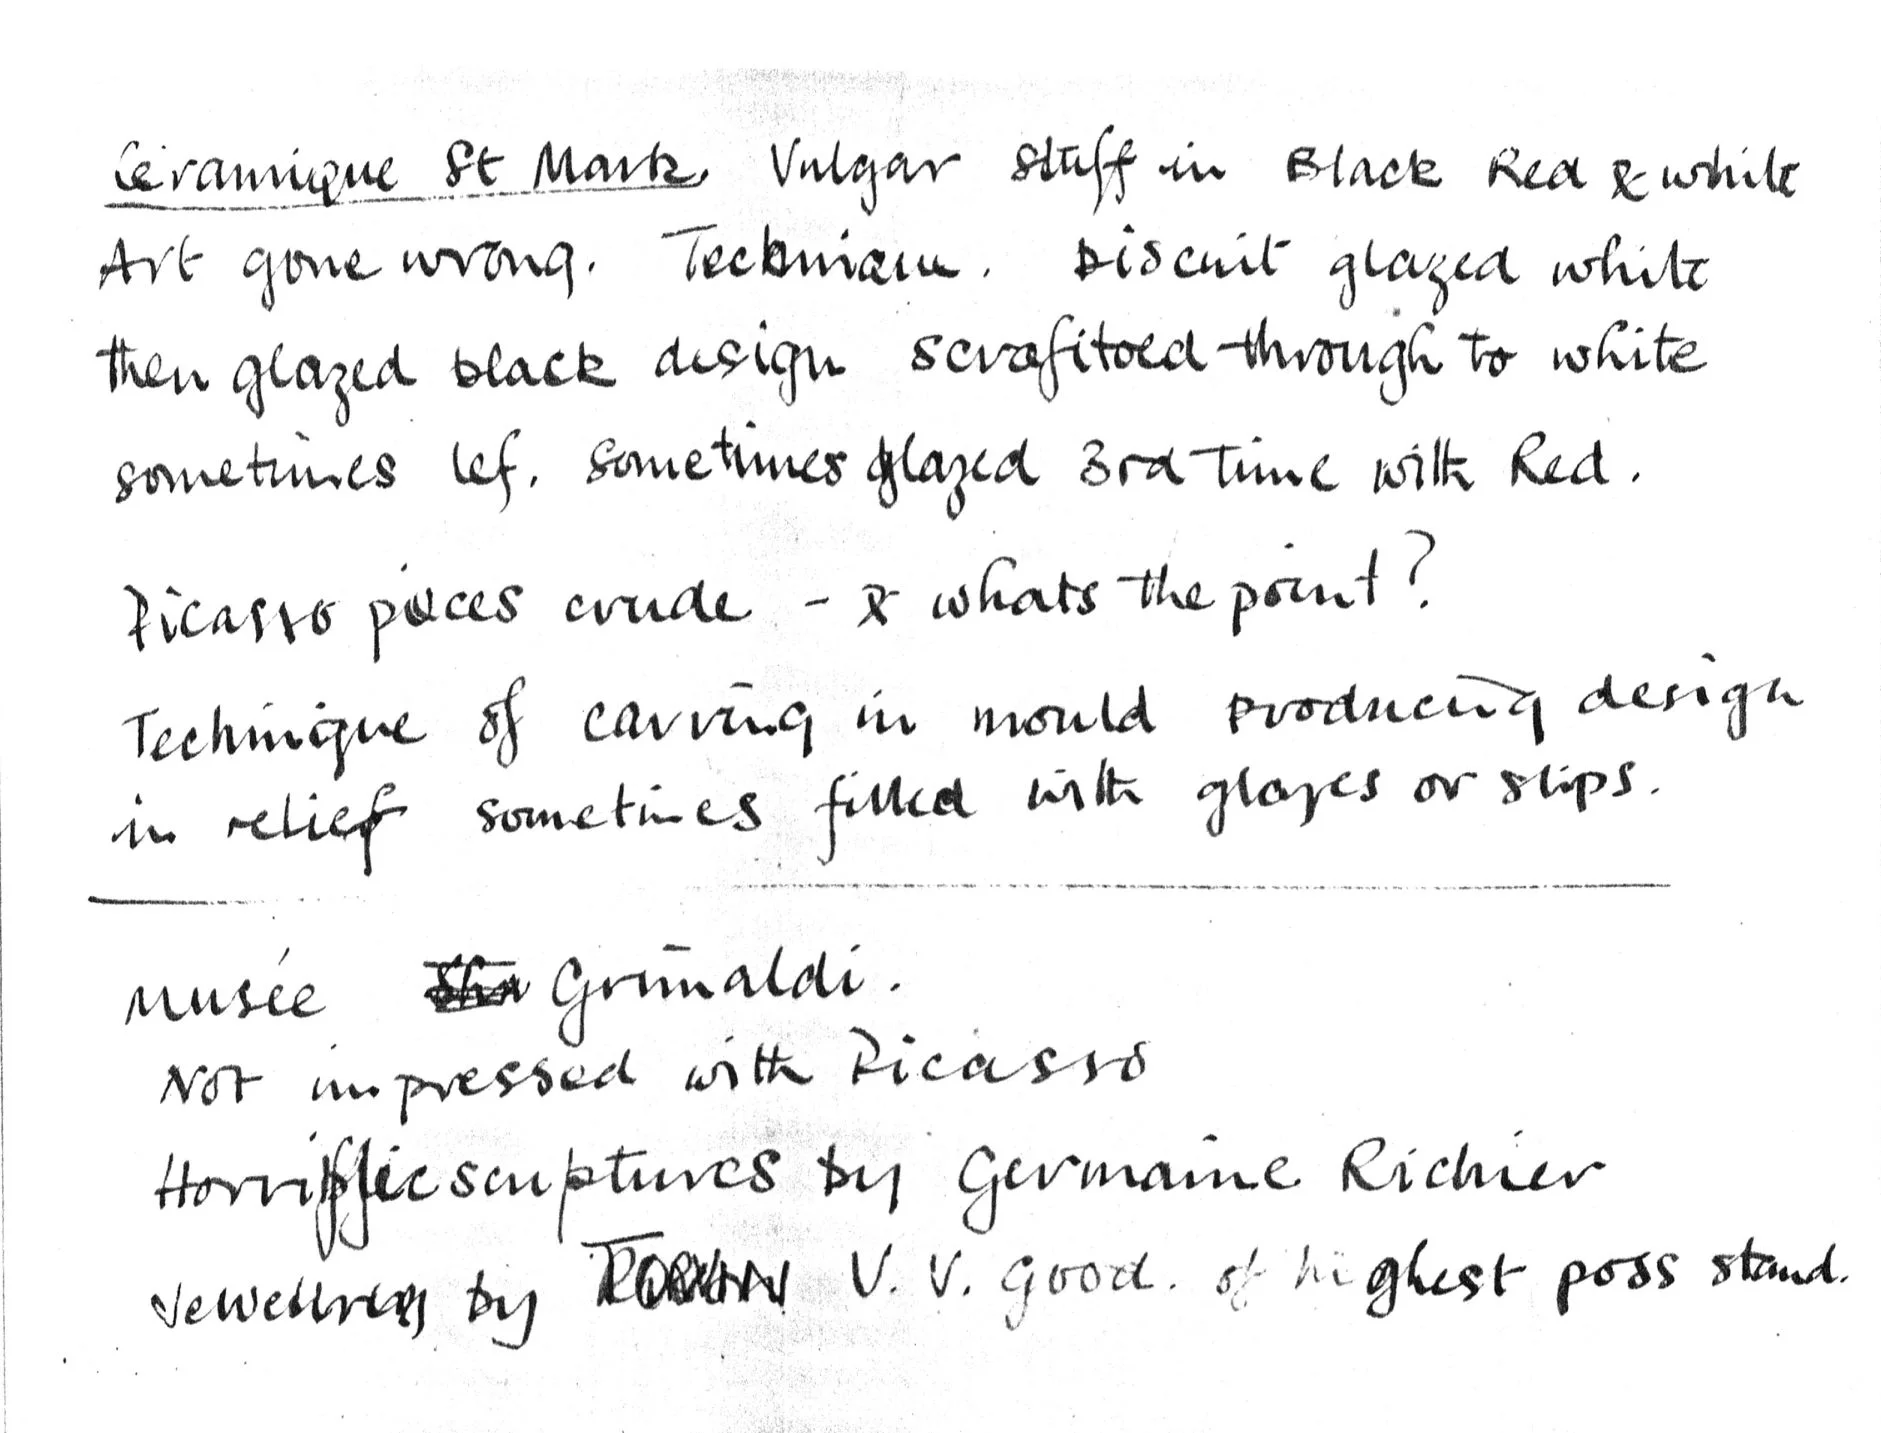 Céramique St Mark. Vulgar stuff in Black Red & white
Art gone wrong. Technique. Biscuit glazed white
then glazed black design scrafitoed through to white
sometimes lef. sometimes glazed 3rd Time with Red.
Picasso pieces crude - & whats the point?
Technique of carving in mould producing design
in relief sometimes filled with glazes or slips.
Musée Grimaldi.
Not impressed with Picasso
Horrific scuptures by Germaine Richier
Jewellrey by V. V. Good. of highest poss stand.